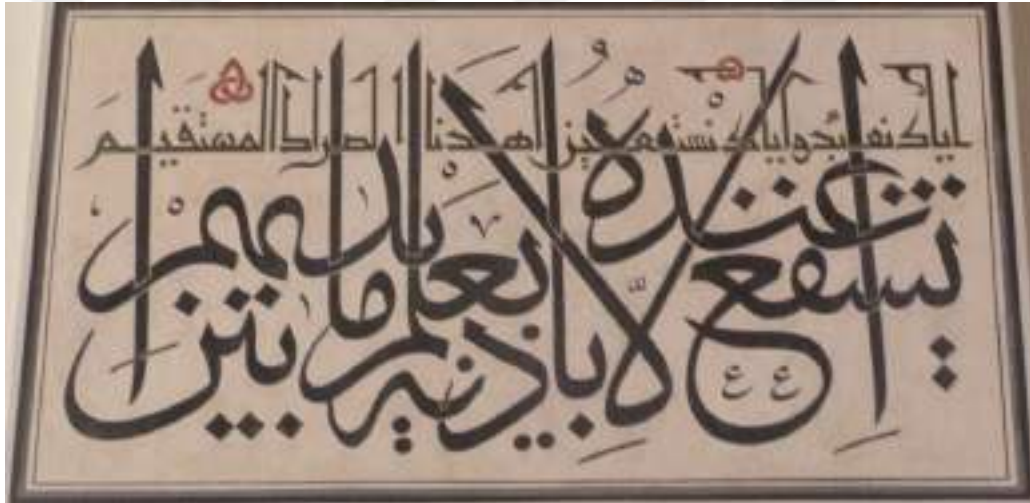 اياك نعبد و اياك نستعين اهدنا الصراط المستقيم
يشفع عنده الا باذنه يعلم ما بين ايديهم